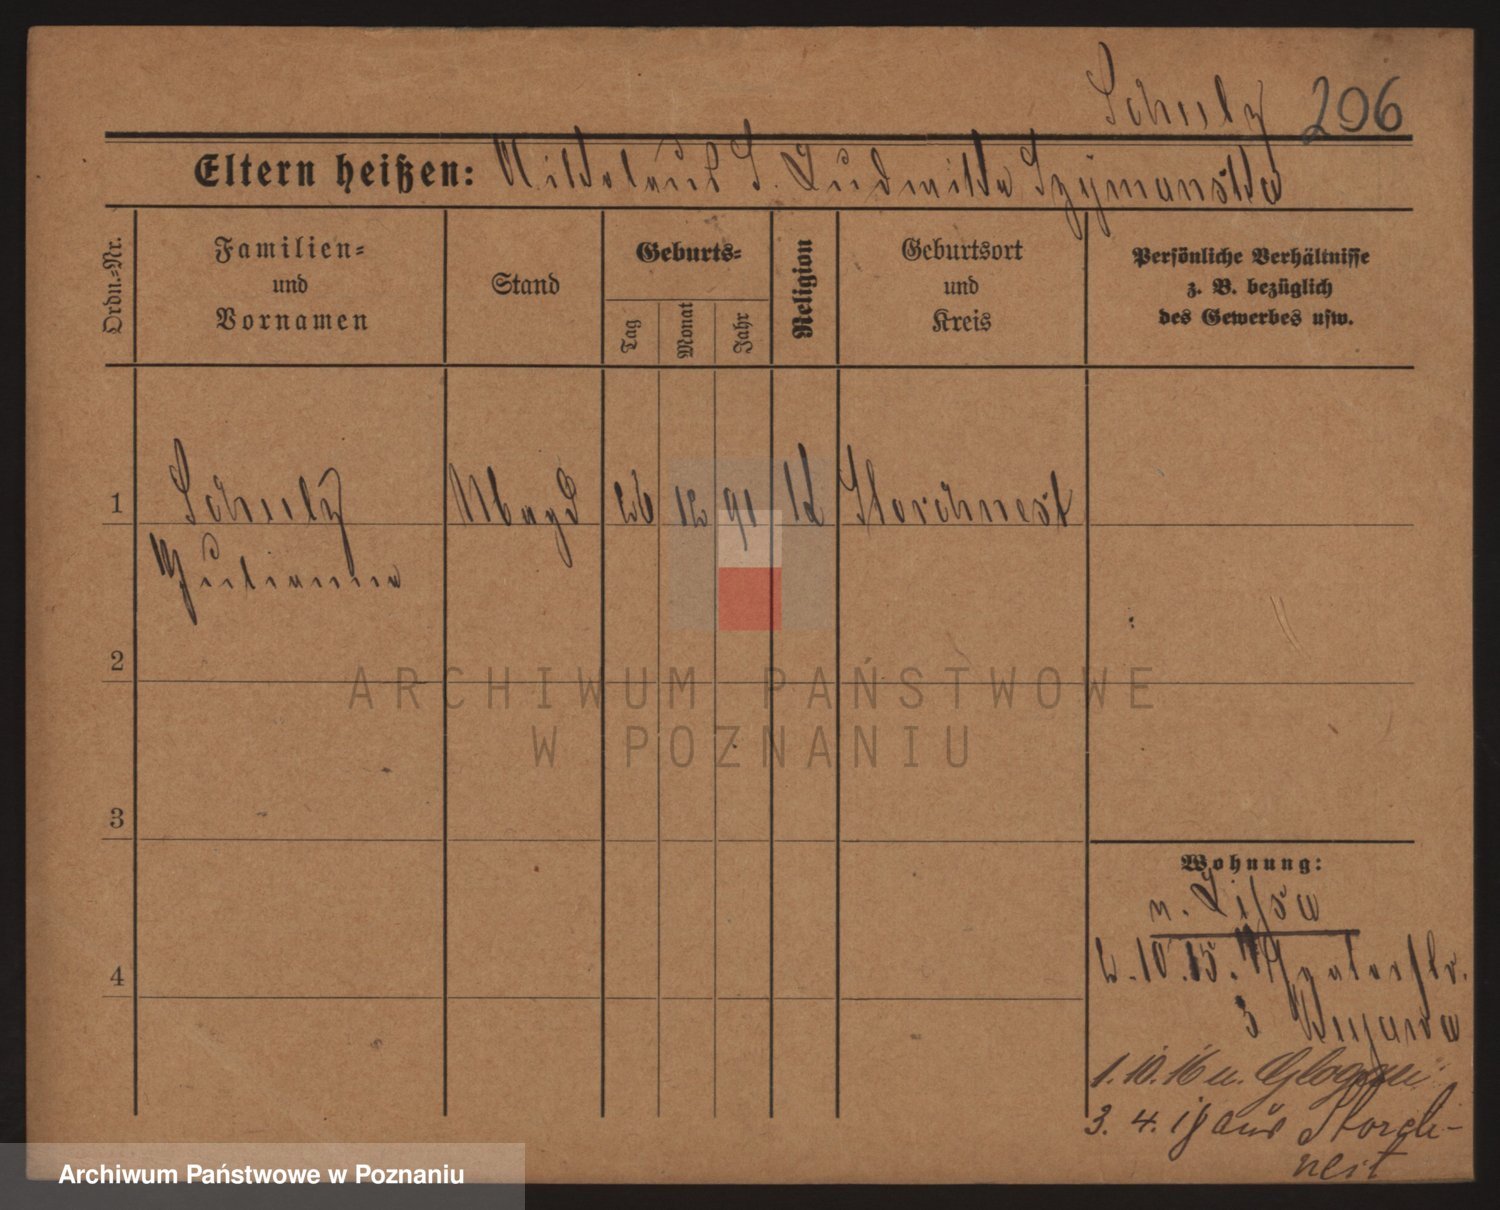 Schulz 206
Eltern heißen: Nikolaus S. Ludwika Szymanska
Ordn.-Nr.
Familien-
und
Vornamen
Stand
Geburts-
Tag
Monat
Jahr
Religion
Geburtsort
und
Kreis
Persönliche Verhältnisse
z. B. bezüglich
des Gewerbes usw.
1
Schulz
Magd
26
12
91
kt
Storchnest
Julianna
2
3
4
Wohnung:
n. Lissa
2.10.15.
3
1.10.16 n. Glogau
3. 4. 18 aus Storch-
nest
ARCHIWUM PAŃSTWOWE
W POZNANIU
Archiwum Państwowe w Poznaniu